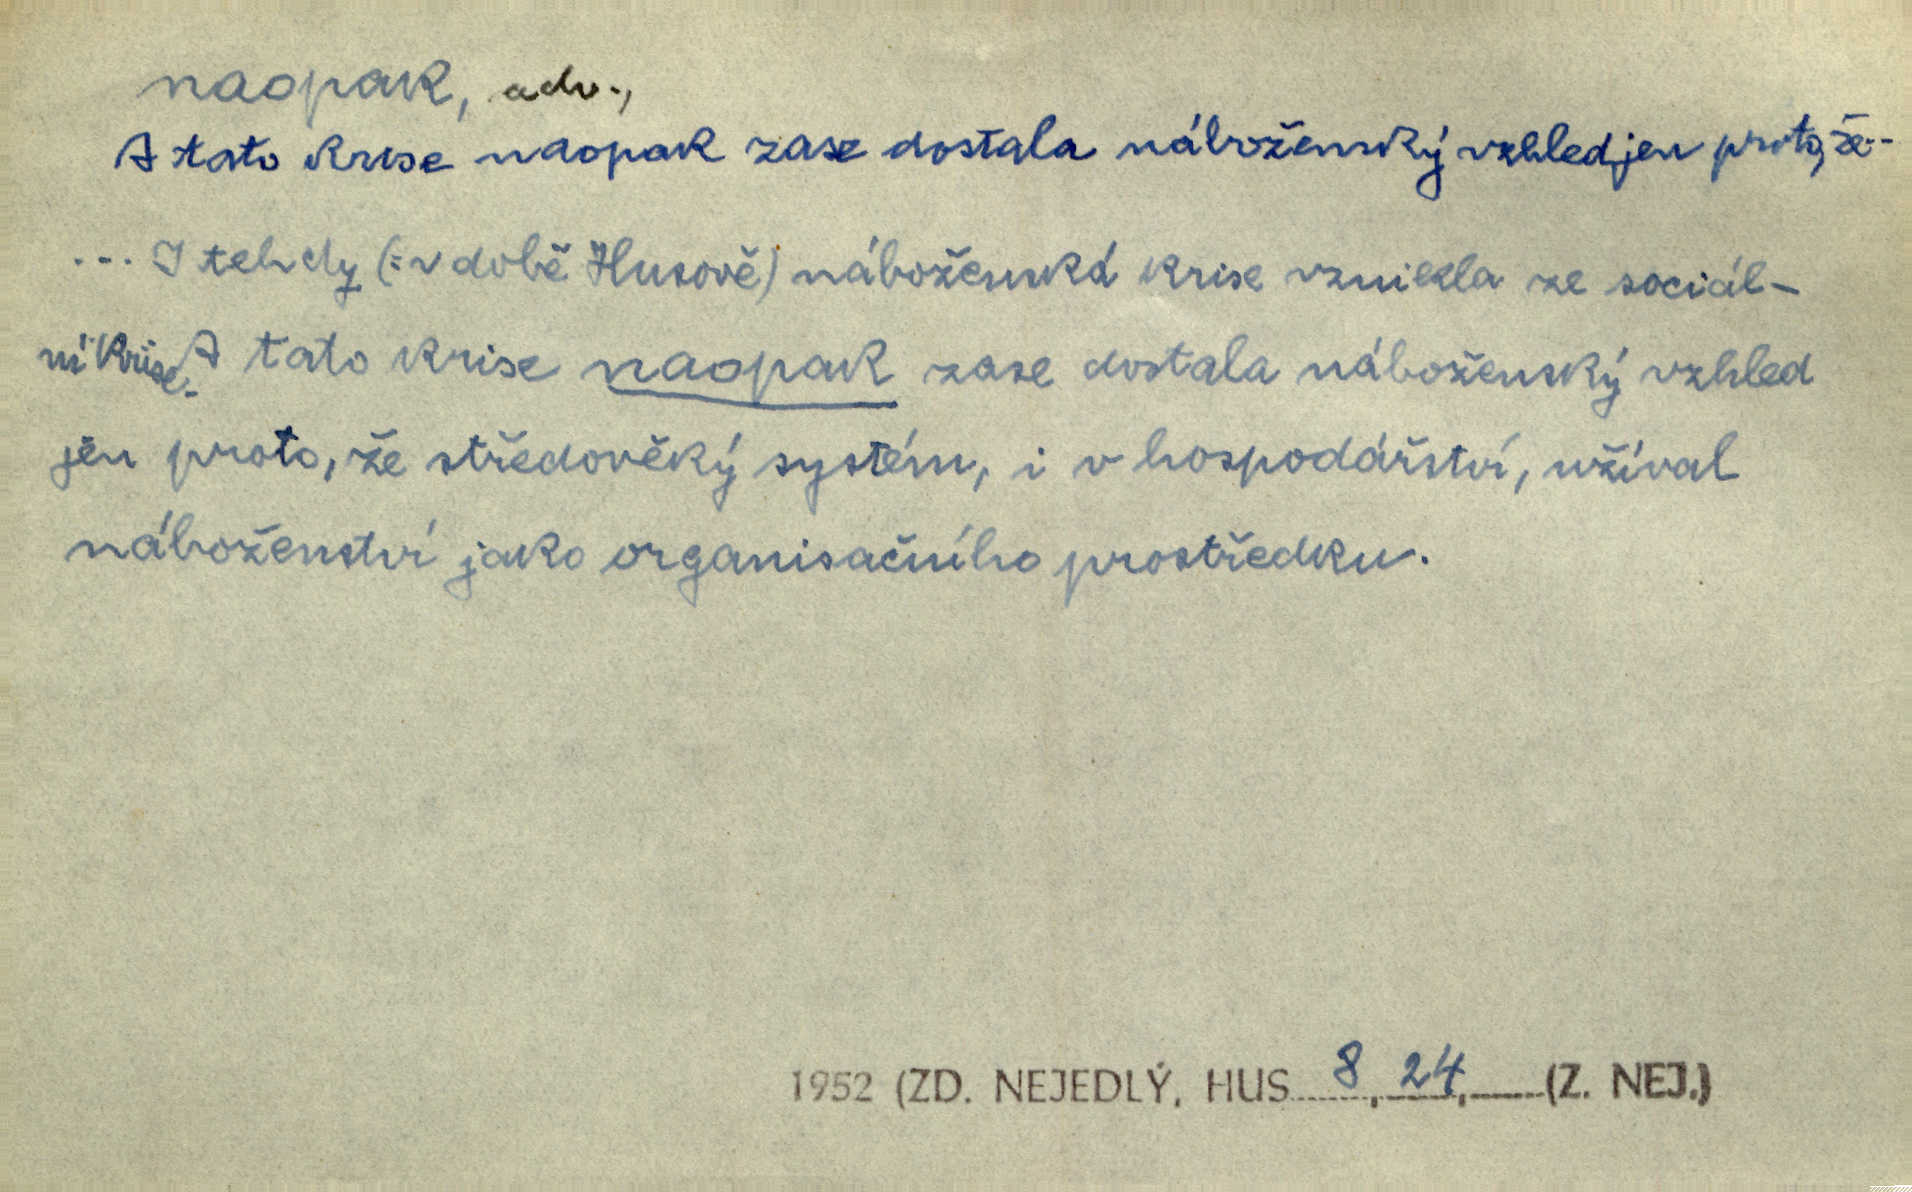 naopak, adv.,
A tato krise naopak zase dostala náboženský vzhled jen proto, že--
... I tehdy (= v době Husově) náboženská krise vznikla ze sociál-
ní krise. A tato krise naopak zase dostala náboženský vzhled
jen proto, že středověký systém, i v hospodářství, užíval
náboženství jako organisačního prostředku.
1952 (ZD. NEJEDLÝ, HUS 8, 24, (Z. NEJ.)